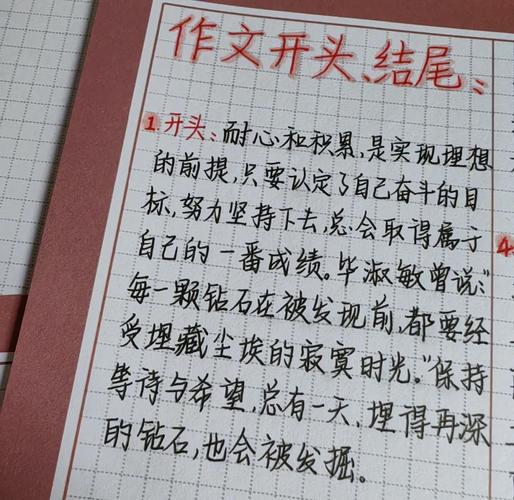 作文开头、结尾：
1 开头：耐心和积累，是实现理想
的前提，只要认定了自己奋斗的目
标，努力坚持下去，总会取得属于
自己的一番成绩。毕淑敏曾说：“
每一颗钻石在被发现前，都要经
受埋藏尘埃的寂寞时光。”保持
等待与希望，总有一天，埋得再深
的钻石，也会被发掘。
4.